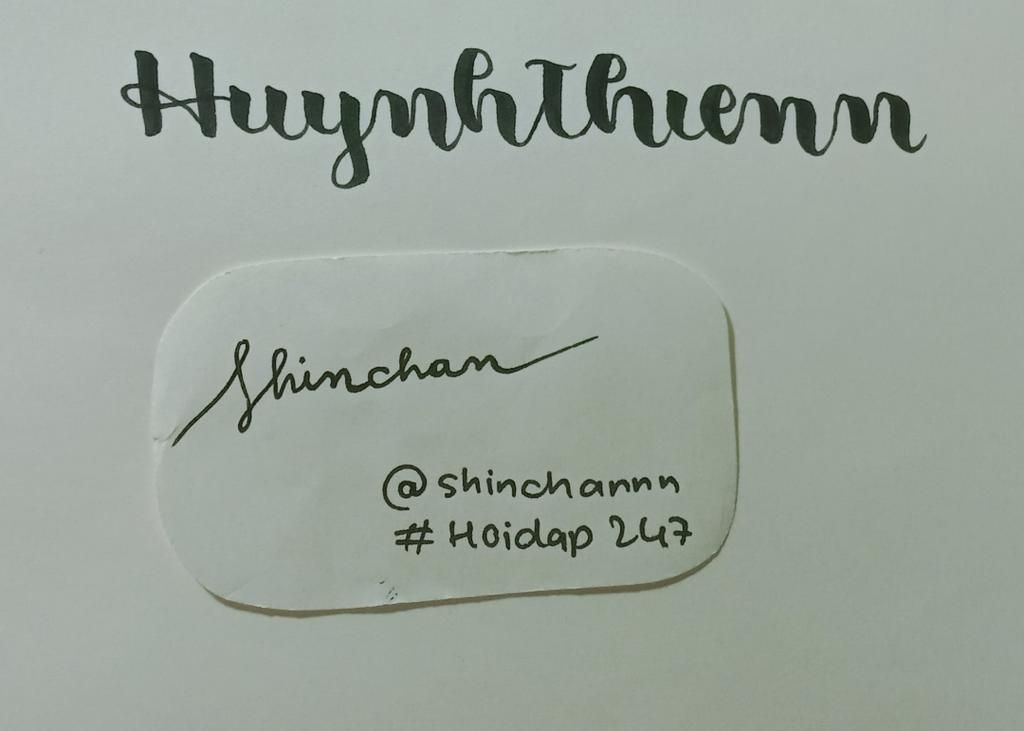 Huynhthienn
Shinchan
@shinchannn
# Hoidap 247